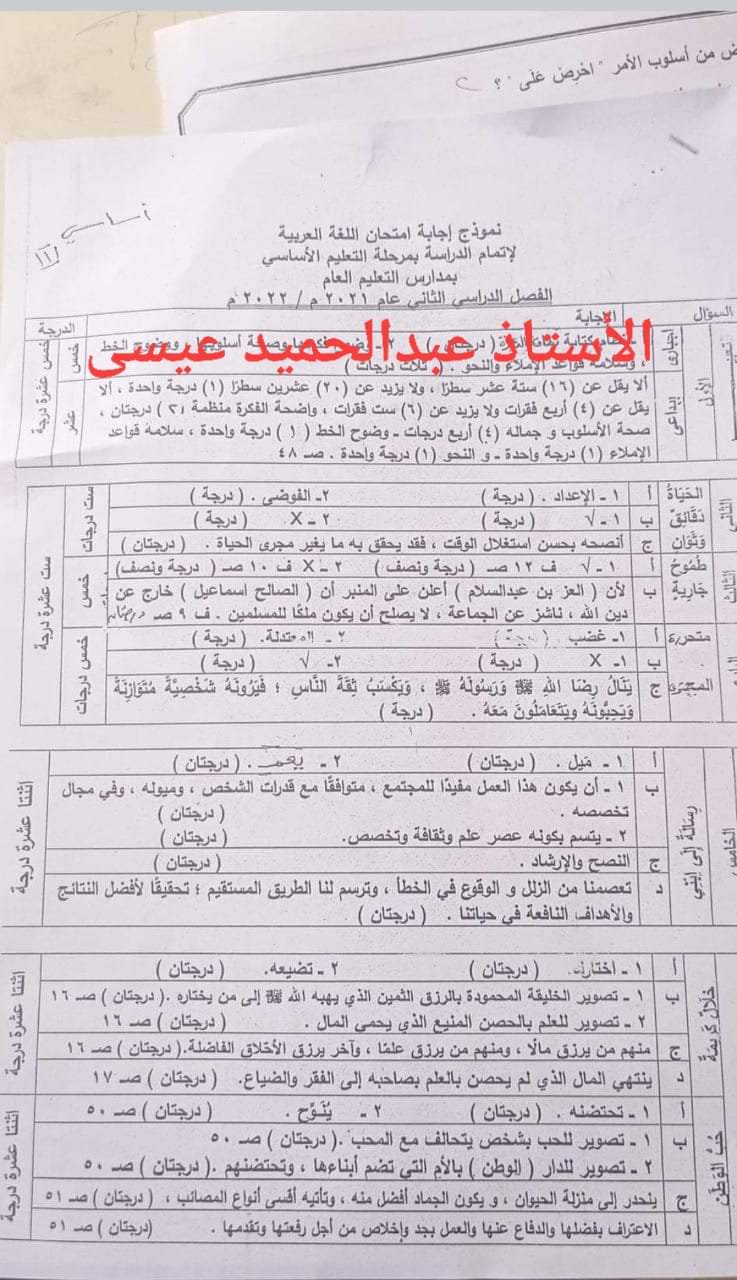 ض من أسلوب الأمر " احرص على " ؟
أساسي
نموذج إجابة امتحان اللغة العربية
لإتمام الدراسة بمرحلة التعليم الأساسي
بمدارس التعليم العام
الفصل الدراسي الثاني عام ٢٠٢١ م / ٢٠٢٢ م
الأستاذ عبدالحميد عيسى
السؤال الإجابة الدرجة
الأول إجباري كتابة ( درجتان ) ٢ - وصحة أسلوبها وضوح الخط خمس
، وسلامة قواعد الإملاء والنحو . ( ثلاث درجات )
إبداعي ألا يقل عن (١٦) ستة عشر سطرًا ، ولا يزيد عن (٢٠) عشرين سطرًا (١) درجة واحدة ، ألا عشر
يقل عن (٤) أربع فقرات ولا يزيد عن (٦) ست فقرات ، واضحة الفكرة منظمة (٢) درجتان ،
صحة الأسلوب و جماله (٤) أربع درجات - وضوح الخط (١) درجة واحدة ، سلامة قواعد
الإملاء (١) درجة واحدة - و النحو (١) درجة واحدة . صـ ٤٨
خمس عشرة درجة
الثاني الحَيَاةُ أ ١ - الإعداد . ( درجة ) ٢ - الفوضى . ( درجة ) ست درجات
دَقَائِقُ ب ١ - √ ( درجة ) ٢ - X ( درجة )
وَثَوَانٍ ج أنصحه بحسن استغلال الوقت ، فقد يحقق به ما يغير مجرى الحياة . ( درجتان )
الثالث طُمُوحُ أ ١ - √ ف ١٢ صـ ( درجة ونصف ) ٢ - X ف ١٠ صـ ( درجة ونصف) خمس
جَارِيَةٍ ب لأن ( العز بن عبدالسلام ) أعلن على المنبر أن ( الصالح اسماعيل ) خارج عن
دين الله ، ناشز عن الجماعة ، لا يصلح أن يكون ملكًا للمسلمين . ف ٩ صـ درجتان
ست عشرة درجة
متحررة أ ١- غضب (درجة) ٢ - المعتدلة. ( درجة ) خمس درجات
ب ١- X ( درجة ) ٢- √ ( درجة )
ج يَنَالُ رِضَا اللهِ ﷺ وَرَسُولَهُ ﷺ ، وَيَكْسَبُ ثِقَةَ النَّاسِ ؛ فَيَرَوْنَهُ شَخْصِيَّةً مُتَوَازِنَةً
وَيُحِبُّونَهُ وَيَتَعَامَلُونَ مَعَهُ . ( درجة )
١
الخامس رِسَالَةٌ إِلَى ابْنِي أ ١ - مَيل . ( درجتان ) ٢ - يعصم . ( درجتان ) اثنتا عشرة درجة
ب ١ - أن يكون هذا العمل مفيدًا للمجتمع ، متوافقًا مع قدرات الشخص ، وميوله ، وفي مجال
تخصصه . ( درجتان )
٢ - يتسم بكونه عصر علم وثقافة وتخصص. ( درجتان )
ج النصح والإرشاد . ( درجتان )
د تعصمنا من الزلل و الوقوع في الخطأ ، وترسم لنا الطريق المستقيم ؛ تحقيقًا لأفضل النتائج
والأهداف النافعة في حياتنا . ( درجتان )
خلَالٌ كَرِيمَةٌ أ ١ - اختارك. ( درجتان ) ٢ - تضيعه. ( درجتان ) اثنتا عشرة درجة
ب ١ - تصوير الخليقة المحمودة بالرزق الثمين الذي يهبه الله ﷺ إلى من يختاره . (درجتان ) صـ ١٦
٢ - تصوير للعلم بالحصن المنيع الذي يحمي المال . ( درجتان ) صـ ١٦
ج منهم من يرزق مالًا ، ومنهم من يرزق علمًا ، وآخر يرزق الأخلاق الفاضلة. (درجتان ) صـ ١٦
د ينتهي المال الذي لم يحصن بالعلم بصاحبه إلى الفقر والضياع. ( درجتان ) صـ ١٧
حُبُّ الوَطَنِ أ ١ - تحتضنه . ( درجتان ) ٢ - يُنَوَّح . ( درجتان ) صـ ٥٠ اثنتا عشرة درجة
ب ١ - تصوير للحب بشخص يتحالف مع المحب . (درجتان ) صـ ٥٠
٢ - تصوير للدار ( الوطن ) بالأم التي تضم أبناءها ، وتحتضنهم . ( درجتان ) صـ ٥٠
ج ينحدر إلى منزلة الحيوان ، و يكون الجماد أفضل منه ، وتأتيه أقسى أنواع المصائب ، ( درجتان ) صـ ٥١
د الاعتراف بفضلها والدفاع عنها والعمل بجد وإخلاص من أجل رفعتها وتقدمها . (درجتان ) صـ ٥١